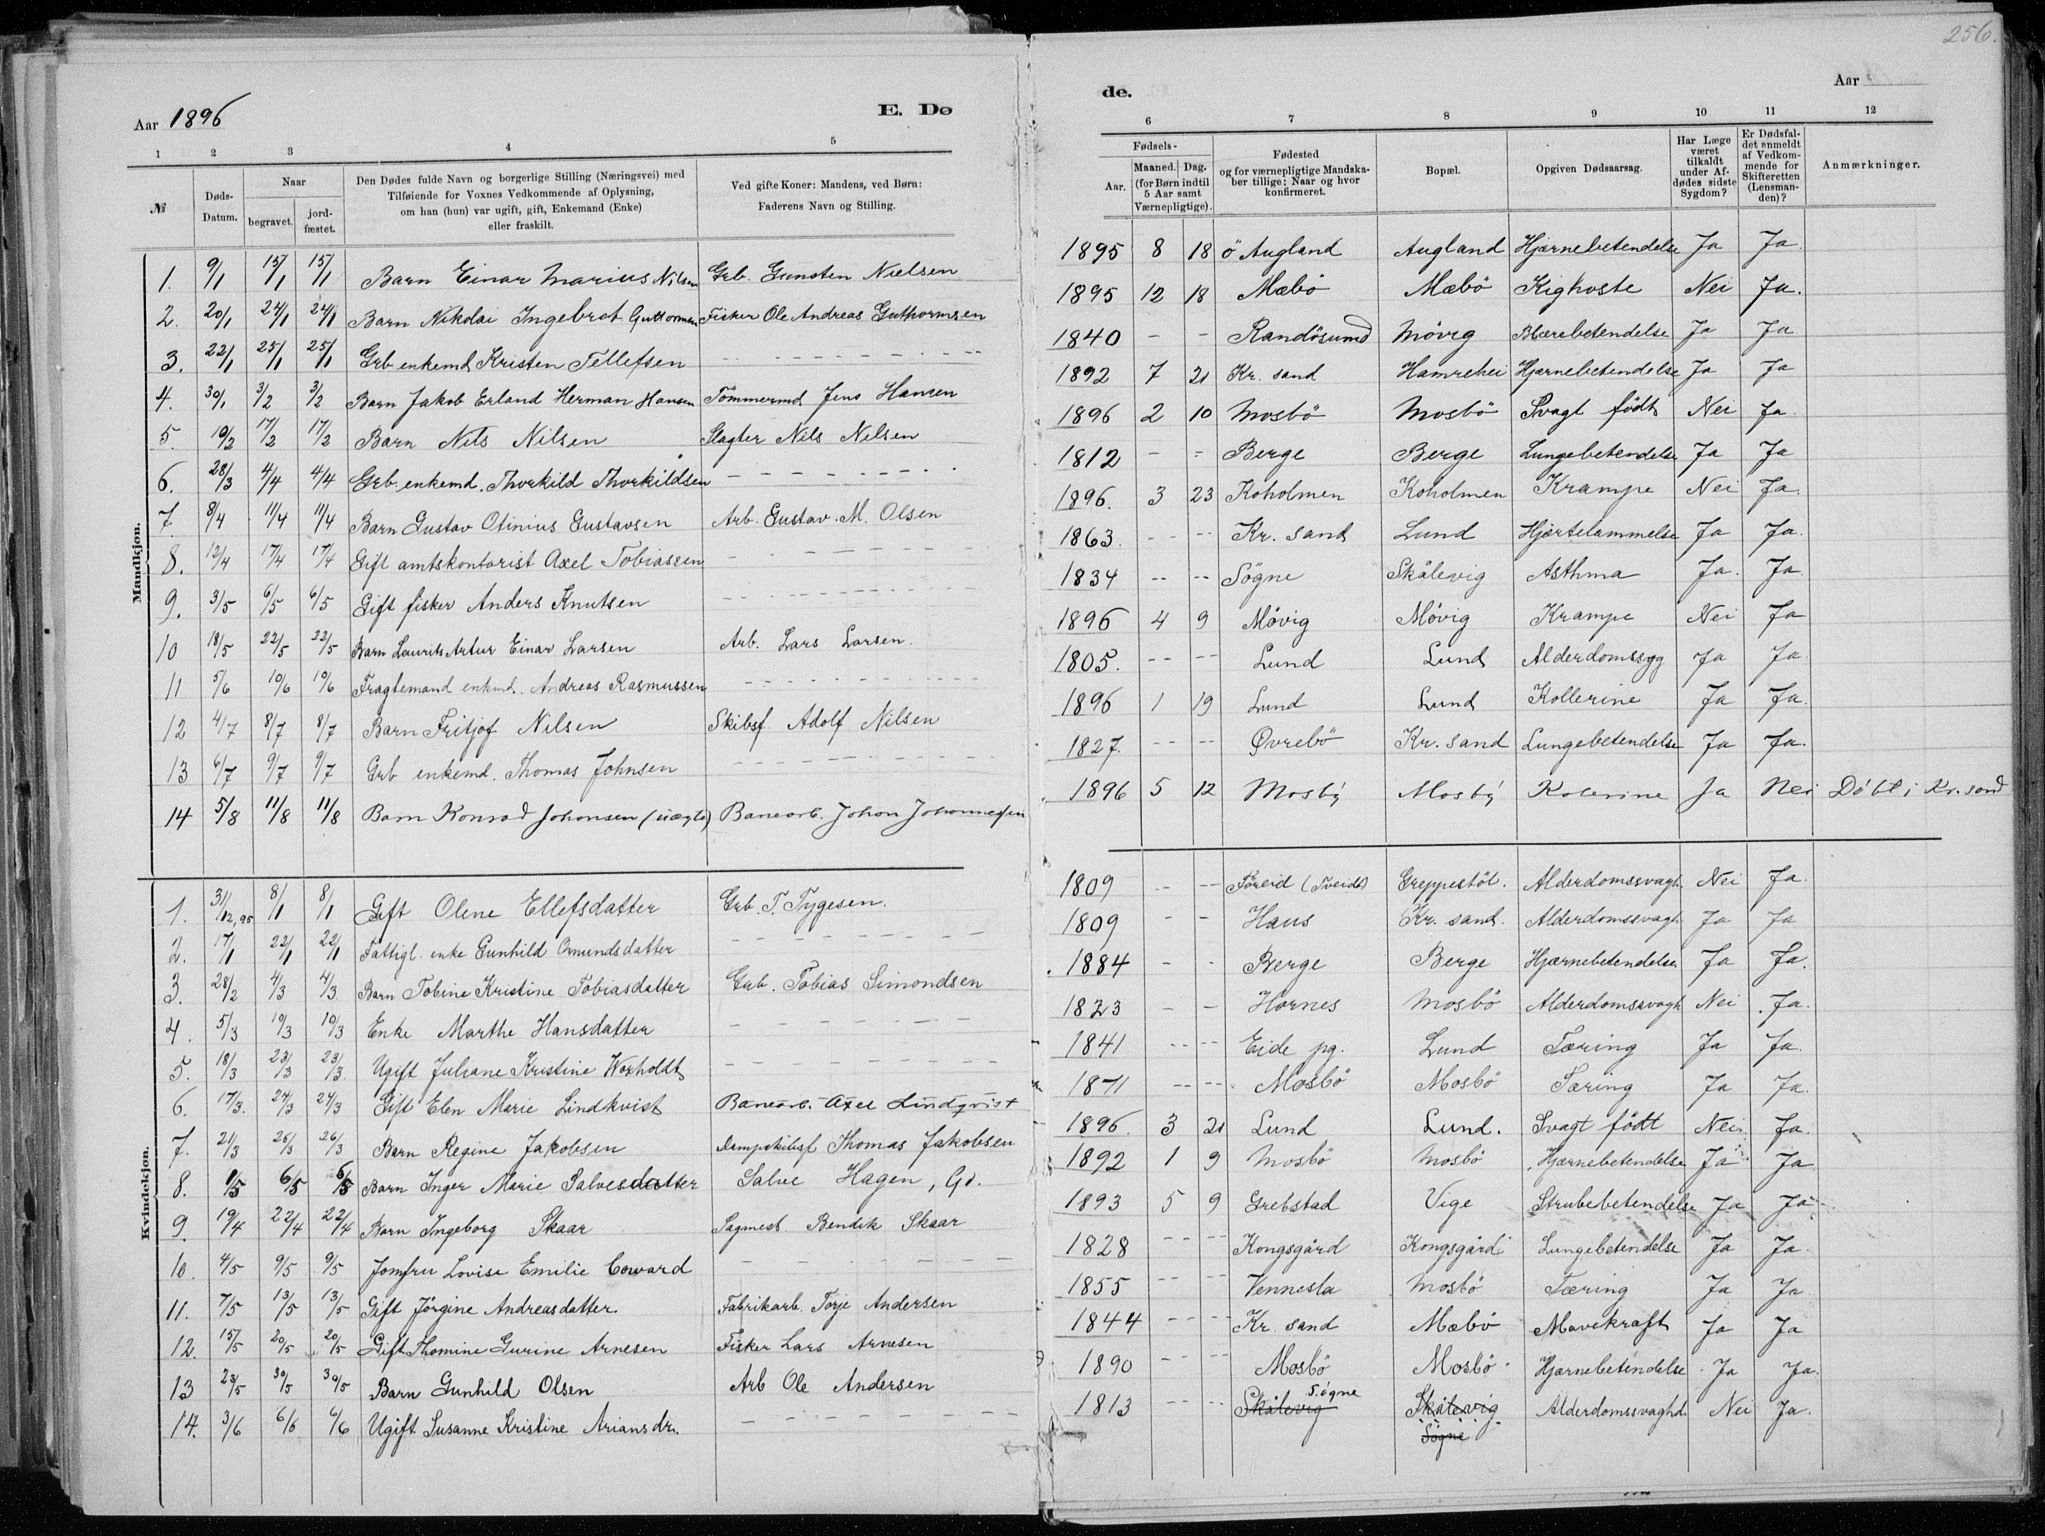 256.
Aar 1896
E. Dø
de.
Aar
1 2 3 4 5 6 7 8 9 10 11 12
№
Døds-Datum.
Naar
begravet.
jord-fæstet.
Den Dødes fulde Navn og borgerlige Stilling (Næringsvei) med
Tilføiende for Voxnes Vedkommende af Oplysning,
om han (hun) var ugift, gift, Enkemand (Enke)
eller fraskilt.
Ved gifte Koner: Mandens, ved Børn:
Faderens Navn og Stilling.
Fødsels-
Aar.
Maaned. Dag.
(for Børn indtil
5 Aar samt
Værnepligtige).
Fødested
og for værnepligtige Mandska-
ber tillige: Naar og hvor
konfirmeret.
Bopæl.
Opgiven Dødsaarsag.
Har Læge
været
tilkaldt
under Af-
dødes sidste
Sygdom?
Er Dødsfal-
det anmeldt
af Vedkom-
mende for
Skifteretten
(Lensman-
den)?
Anmærkninger.
Mandkjøn.
1. 9/1 15/1 15/1 Barn Einar Marius Nilsen Grb. Gunsten Nielsen 1895 8 18 ö Augland Augland Hjærnebetendelse Ja Ja.
2. 20/1 24/1 24/1 Barn Nikolai Ingebrot Guttormsen Fisker Ole Andreas Guthormsen 1895 12 18 Mæbö Mæbö Kighoste Nei Ja.
3. 22/1 25/1 25/1 Grb enkemd Kristen Tellefsen 1840 - - Randösund Mövig Blærebetendelse Ja Ja
4. 30/1 3/2 3/2 Barn Jakob Erland Herman Hansen Tömmermd Jens Hansen 1892 7 21 Kr. sand Hamrehei Hjærnebetendelse Ja Ja
5. 10/2 17/2 17/2 Barn Nils Nilsen Slagter Nils Nilsen 1896 2 10 Mosbö Mosbö Svagt född Nei Ja.
6. 28/3 4/4 4/4 Grb enkemd. Thorkild Thorkildsen 1812 - - Berge Berge Lungebetendelse Ja Ja
7. 8/4 11/4 11/4 Barn Gustav Otinius Gustavsen Arb. Gustav. M. Olsen 1896. 3 23 Koholmen Koholmen Krampe Nei Ja.
8. 12/4 17/4 17/4 Gift amtskontorist Axel Tobiassen 1863. - - Kr. sand Lund Hjærtelammelse Ja Ja.
9. 3/5 6/5 6/5 Gift fisker Anders Knutsen 1834 - - Sögne Skålevig Asthma Ja. Ja.
10 18/5 22/5 22/5 Barn Laurits Artur Einar Larsen Arb. Lars Larsen. 1896 4 9 Mövig Mövig Krampe Nei Ja
11 5/6 10/6 10/6 Fragtemand enkmd. Andreas Rasmussen 1805. - - Lund Lund Alderdomssyg Ja Ja.
12 4/7 8/7 8/7 Barn Fritjof Nilsen Skibsf. Adolf Nilsen 1896 1 19 Lund Lund Kollerine Ja Ja.
13 6/7 9/7 9/7 Grb enkemd. Thomas Johnsen 1827. - - Øvrebö Kr. sand Lungebetendelse Ja Ja.
14 5/8 11/8 11/8 Barn Konrad Johansen (uægte) Banearb. Johan Johannessen 1896 5 12 Mosby Mosby Kolerine Ja Nei Döbt i Kr. sand
Kvindekjøn.
1. 31/12,95 8/1 8/1 Gift Olene Ellefsdatter Grb. T. Tygesen. 1809 - - Föreid (Tveidt) Greppestöl. Alderdomssvagh. Nei Ja.
2. 17/1 22/1 22/1 Fattigl. enke Gunhild Omundsdatter 1809 - - Haus Kr. sand. Alderdomssvagh Ja Ja
3. 28/2 4/3 4/3 Barn Tobine Kristine Tobiasdatter Grb. Tobias Simondsen 1884 - - Berge Berge Hjærnebetendelse Ja Ja.
4. 5/3 10/3 10/3 Enke Marthe Hansdatter 1823 - - Hornes Mosbö Alderdomssvagh Nei Ja.
5. 18/3 23/3 23/3. Ugift Juliane Kristine Woxholdt 1841 - - Eide pg. Lund Tæring Ja Ja.
6. 17/3. 24/3 24/3 Gift Elen Marie Lindkvist Banearb. Axel Lindqvist 1871 - - Mosbö Mosbö Tæring Ja Ja.
7. 21/3 26/3 26/3 Barn Regine Jakobsen Dampskibsf Thomas Jakobsen 1896. 3 21 Lund Lund. Svagt födt Nei Ja.
8. 1/5 6/5 6/5 Barn Inger Marie Salvesdatter Salve Hagen, Gd. 1892 1 9 Mosbö Mosbö Hjærnebetendelse Ja Ja
9. 19/4 22/4 22/4 Barn Ingeborg Skaar Sagmest. Bendik Skaar 1893 5 9 Grebstad Vige Strubebetendelse Ja Ja
10. 4/5 9/5 9/5 Jomfru Lovise Emilie Coward 1828 - - Kongsgård Kongsgård Lungebetendelse Ja Ja.
11. 7/5 13/5 13/5 Gift Jörgine Andreasdatter. Fabrikarb. Torje Andersen 1855 - - Vennesla Mosbö Tæring Ja Ja.
12. 15/5 20/5 20/5 Gift Thomine Gurine Arnesen Fisker Lars Arnesen 1844 - - Kr. sand Mæbö Mavekraft Ja Ja
13 23/5 30/5 30/5 Barn Gunhild Olsen Arb Ole Andersen 1890 - - Mosbö Mosbö Hjærnebetendelse Ja Ja.
14. 3/6 6/6 6/6 Ugift Susanne Kristine Ariansdr. 1813 - - Skålevig Sögne Skålevig Sögne Alderdomssvaghd. Nei Ja.